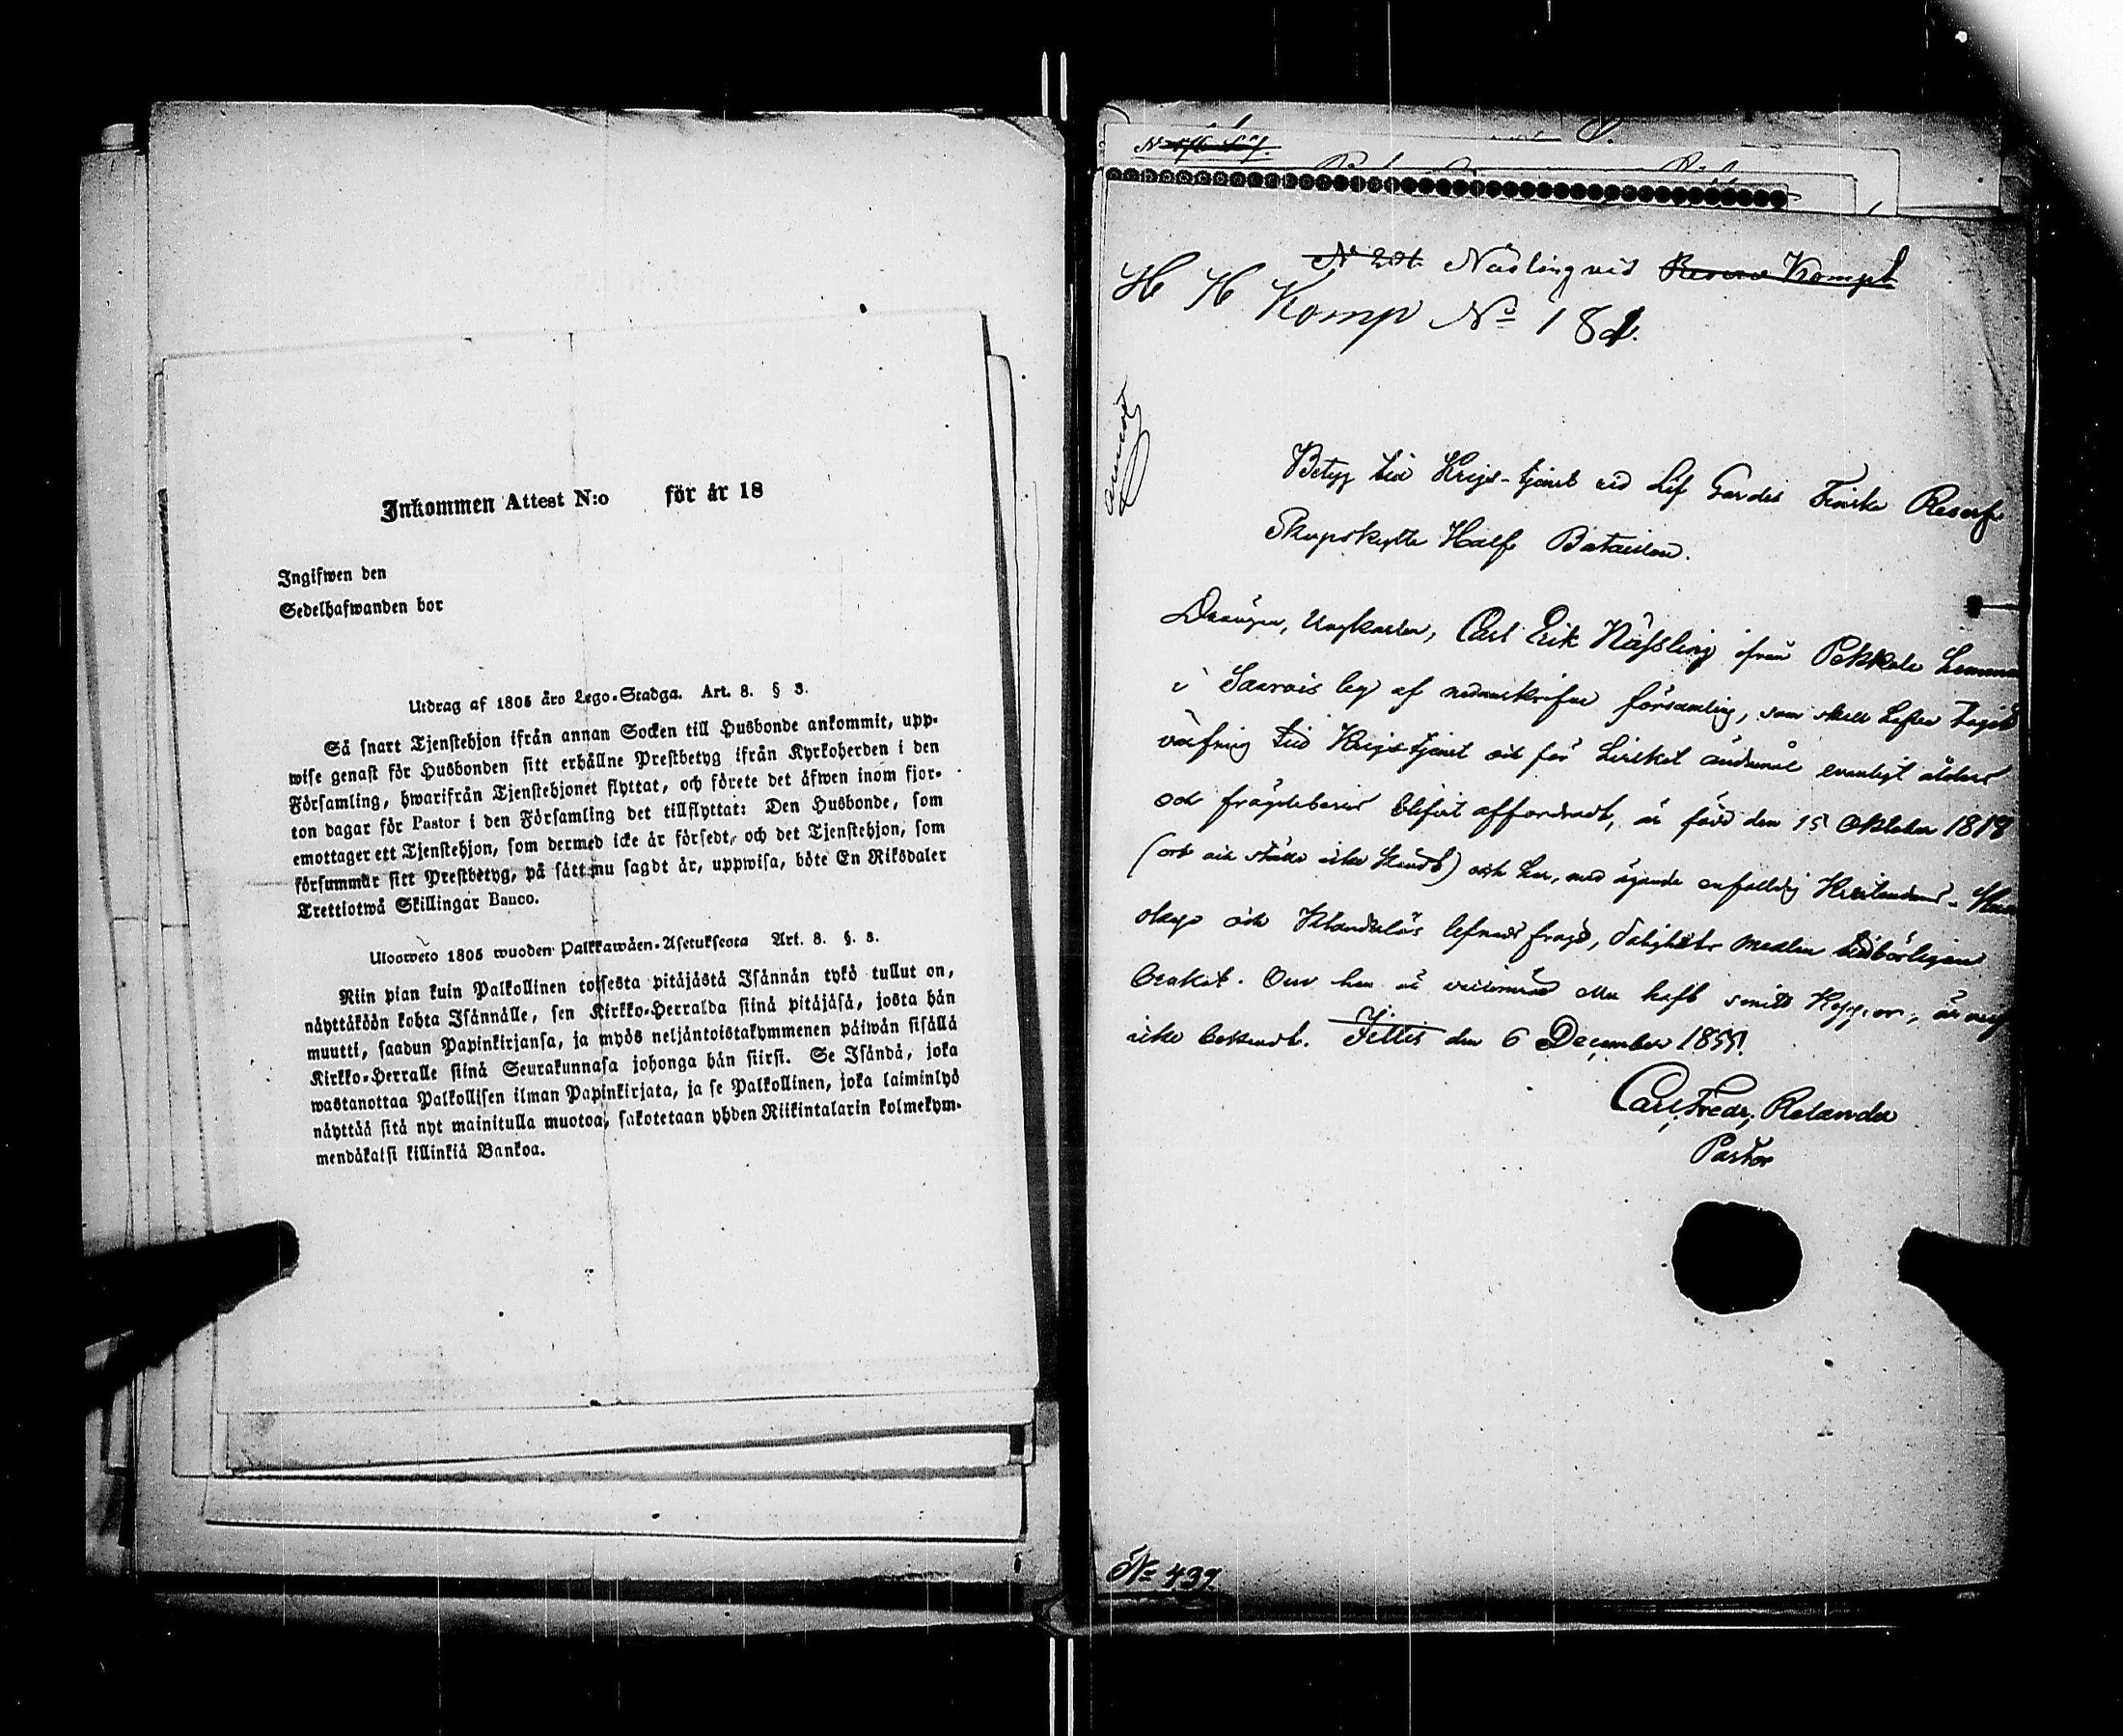 Inkommen Attest N:o för år 18
Ingifwen den
Sedelhafwanden bor
Utdrag af 1805 års Lego-Stadga. Art. 8. § 3.
Så snart Tjenstehjon ifrån annan Socken till Husbonde ankommit, upp-
wise genast för Husbonden sitt erhållne Prestbetyg ifrån Kyrkoherden i den
Församling, hwarifrån Tjenstehjonet flyttat, och förete det äfwen inom fjor-
ton dagar för Pastor i den Församling det tillflyttat: Den Husbonde, som
emottager ett Tjenstehjon, som dermed icke är försedt, och det Tjenstehjon, som
försummar sitt Prestbetyg, på sätt nu sagdt är, uppwisa, böte En Riksdaler
Trettiotwå Skillingar Banco.
Ulosweto 1805 wuoden Palkkawäen-Asetuksesta Art. 8. §. 3.
Niin pian kuin Palkollinen toisesta pitäjästä Isännän tykö tullut on,
näyttäköön kohta Isännälle, sen Kirkko-Herralda siinä pitäjäsä, josta hän
muutti, saadun Papinkirjansa, ja myös neljäntoistakymmenen päiwän sisällä
Kirkko-Herralle siinä Seurakunnasa johonga hän siirsi. Se Isändä, joka
wastanottaa Palkollisen ilman Papinkirjata, ja se Palkollinen, joka laiminlyö
näyttää sitä nyt mainitulla muotoa, sakotetaan yhden Riikintalarin kolmekym-
mendäkaksi killinkiä Bankoa.
N 201. Näsling vid Reserv Kompt
H H Komp No 181.
Betyg till Krigs-tjenst vid Lif Gardes Finska Reserf
Skarpskytte Half Bataillon.
Drängen, Ungkarlen, Carl Erik Näfsling ifrån Pekkala
i Saarois by af nedanskrifne församling, som skall
värfning till Krigstjenst och för hvilket ändamål
och frägdebevis blifvit affordradt, är född den 15 Oktober 1818
och har, med ägande enfaldig Kristendoms-
skap och klanderlös lefnads frägd, Salighets medlen
brukat. Om han är vaccinerad eller haft smitt Koppor, är mig
icke bekandt. Jittis den 6 December 1855.
Carl Fredr. Relander
Pastor
No 437.